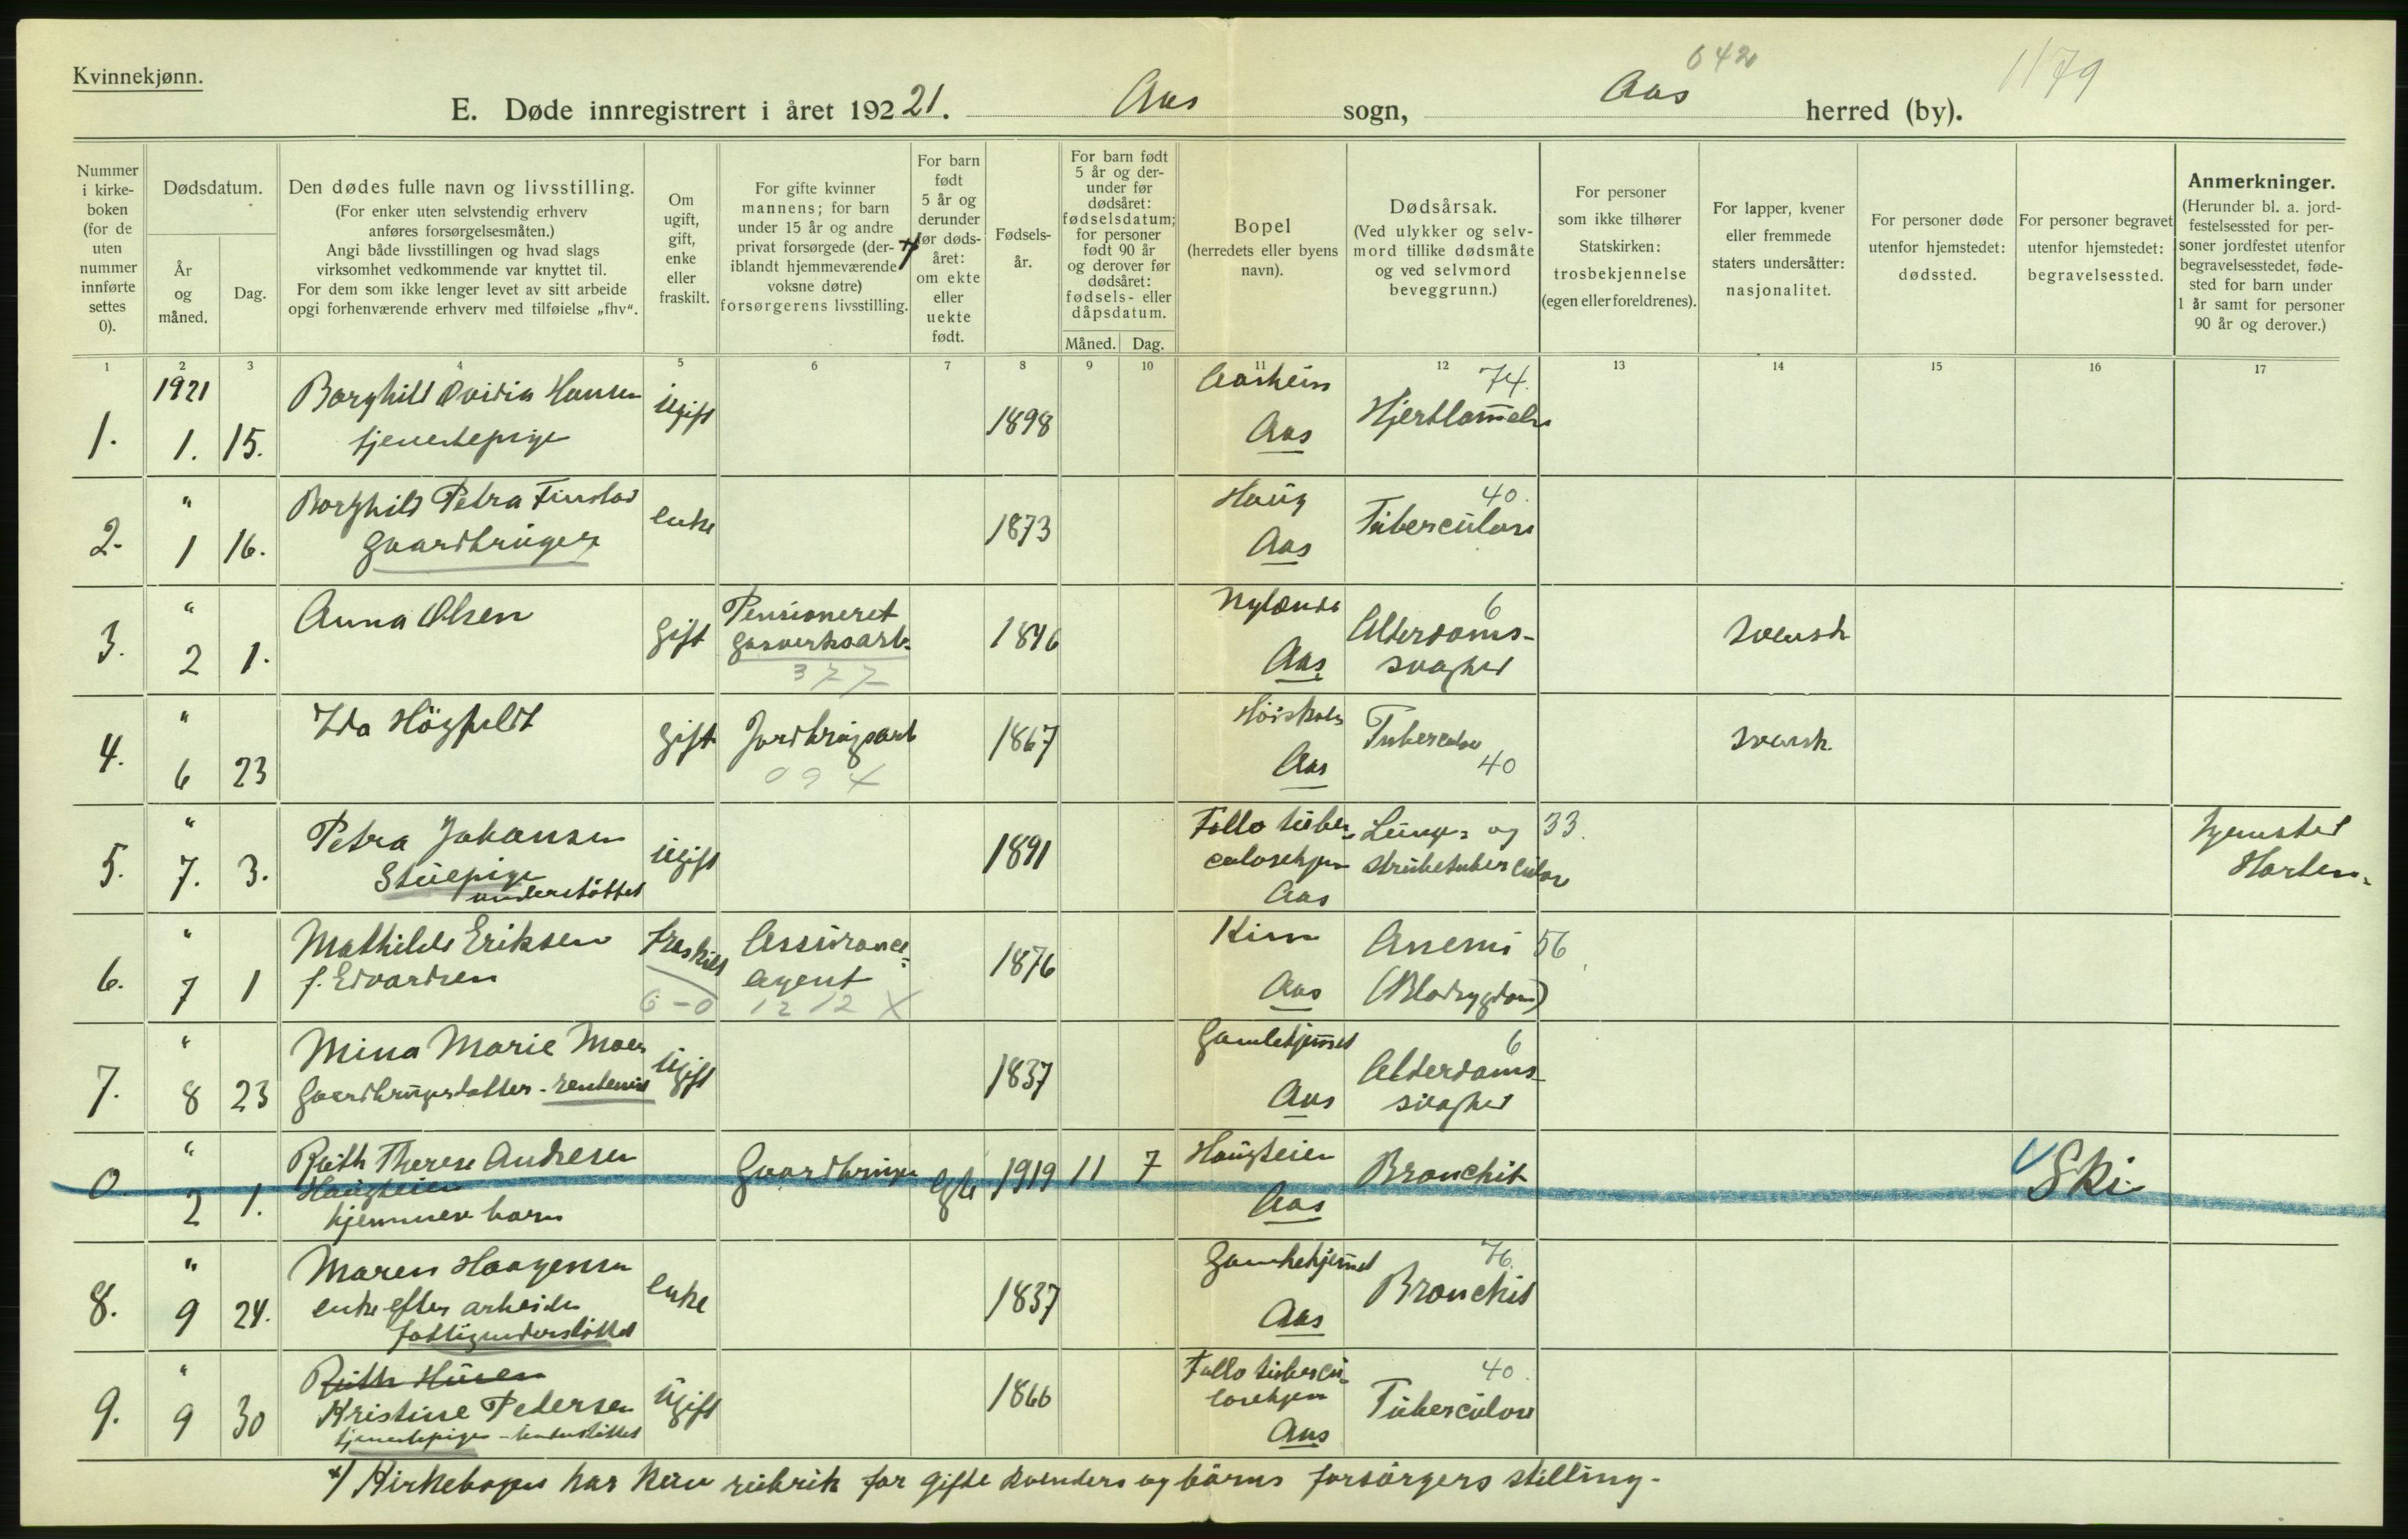 Kvinnekjønn.
642
1179
E. Døde innregistrert i året 192 21. Aas sogn, Aas herred (by).
Nummer i kirke- boken (for de uten nummer innførte settes 0).
Dødsdatum.
År og måned.
Dag.
Den dødes fulle navn og livsstilling.
(For enker uten selvstendig erhverv anføres forsørgelsesmåten.)
Angi både livsstillingen og hvad slags virksomhet vedkommende var knyttet til.
For dem som ikke lenger levet av sitt arbeide opgi forhenværende erhverv med tilføielse „fhv“.
Om ugift, gift, enke eller fraskilt.
For gifte kvinner mannens; for barn under 15 år og andre privat forsørgede (der- iblandt hjemmeværende voksne døtre) forsørgerens livsstilling.
For barn født 5 år og derunder før døds- året: om ekte eller uekte født.
Fødsels- år.
For barn født 5 år og der- under før dødsåret: fødselsdatum; for personer født 90 år og derover før dødsåret: fødsels- eller dåpsdatum.
Måned. Dag.
Bopel (herredets eller byens navn).
Dødsårsak. (Ved ulykker og selv- mord tillike dødsmåte og ved selvmord beveggrunn.)
For personer som ikke tilhører Statskirken: trosbekjennelse (egen eller foreldrenes).
For lapper, kvener eller fremmede staters undersåtter: nasjonalitet.
For personer døde utenfor hjemstedet: dødssted.
For personer begravet utenfor hjemstedet: begravelsessted.
Anmerkninger. (Herunder bl. a. jord- festelsessted for per- soner jordfestet utenfor begravelsesstedet, føde- sted for barn under 1 år samt for personer 90 år og derover.)
1 2 3 4 5 6 7 8 9 10 11 12 13 14 15 16 17
1921 Borghild Ovidia Hansen ugift Aasheim 74.
1. 1. 15. tjenestepige 1898 Aas Hjertlammelse
" Borghild Petra Finstad enke Haug 40.
2. 1 16. gaardbruger 1873 Aas Tuberculose
" Anna Olsen gift Pensioneret Nylænde 6
3. 2 1. gasverksarb. 1846 Aas Alderdoms- svaghed svensk
377
" Ida Högfeldt gift Jordbrugsarb Høiskolen Tuberculose
4. 6 23 094 1867 Aas 40 svensk.
" Petra Johansen ugift Follo tuber- Lunge- og 33. hjemsted
5. 7. 3. Stuepige 1891 culosehjem strubetuberculose Horten.
understøttet Aas
" Mathilde Eriksen fraskilt Assurance- Kirn Anemi 56
6. 7 1 f. Edvardsen agent 1876 Aas (Blodsygdom)
6-0 1212 X
" Mina Marie Moer ugift Gamlehjemmet 6
7. 8 23 Gaardbrugerdatter - rentenist 1837 Aas Alderdoms- svaghed
" Ruth Therese Andresen Gaardbruger Egte 1919 11 7 Haugteien Bronchit Ski
0 2 1. Haugteien Aas
hjemmev barn
" Maren Haagensen enke Gamlehjemmet 76.
8. 9 24. enke efter arbeider 1837 Aas Bronchit
fattigunderstøttet
" Ruth Husen ugift Follo tubercu- 40.
9. 9 30 Kristine Pedersen 1866 losehjem Tuberculose
tjenestepige - understøttet Aas
*/ Kirkebogen har kun rubrik for gifte kvinders og børns forsørgers stilling.